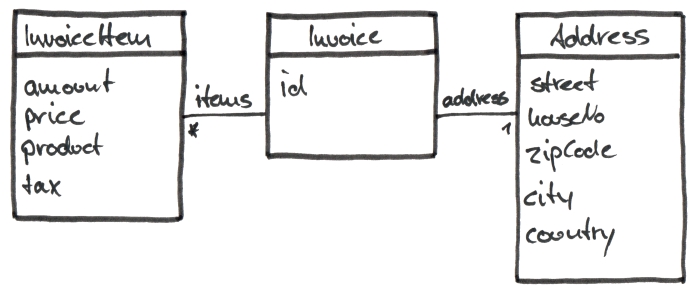 InvoiceItem
amount
price
product
tax
items
*
Invoice
id
address
1
Address
street
houseNo
zipCode
city
country